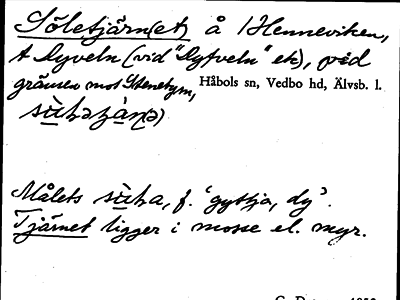 Söletjärn(et) å /Henneviken,
t Lyveln (vid "Lyfveln" ek), vid
gränsen mot Stenebym,
Håbols sn, Vedbo hd, Älvsb. l.
Målets f. 'gyttja, dy'.
Tjärnet ligger i mosse el. myr.